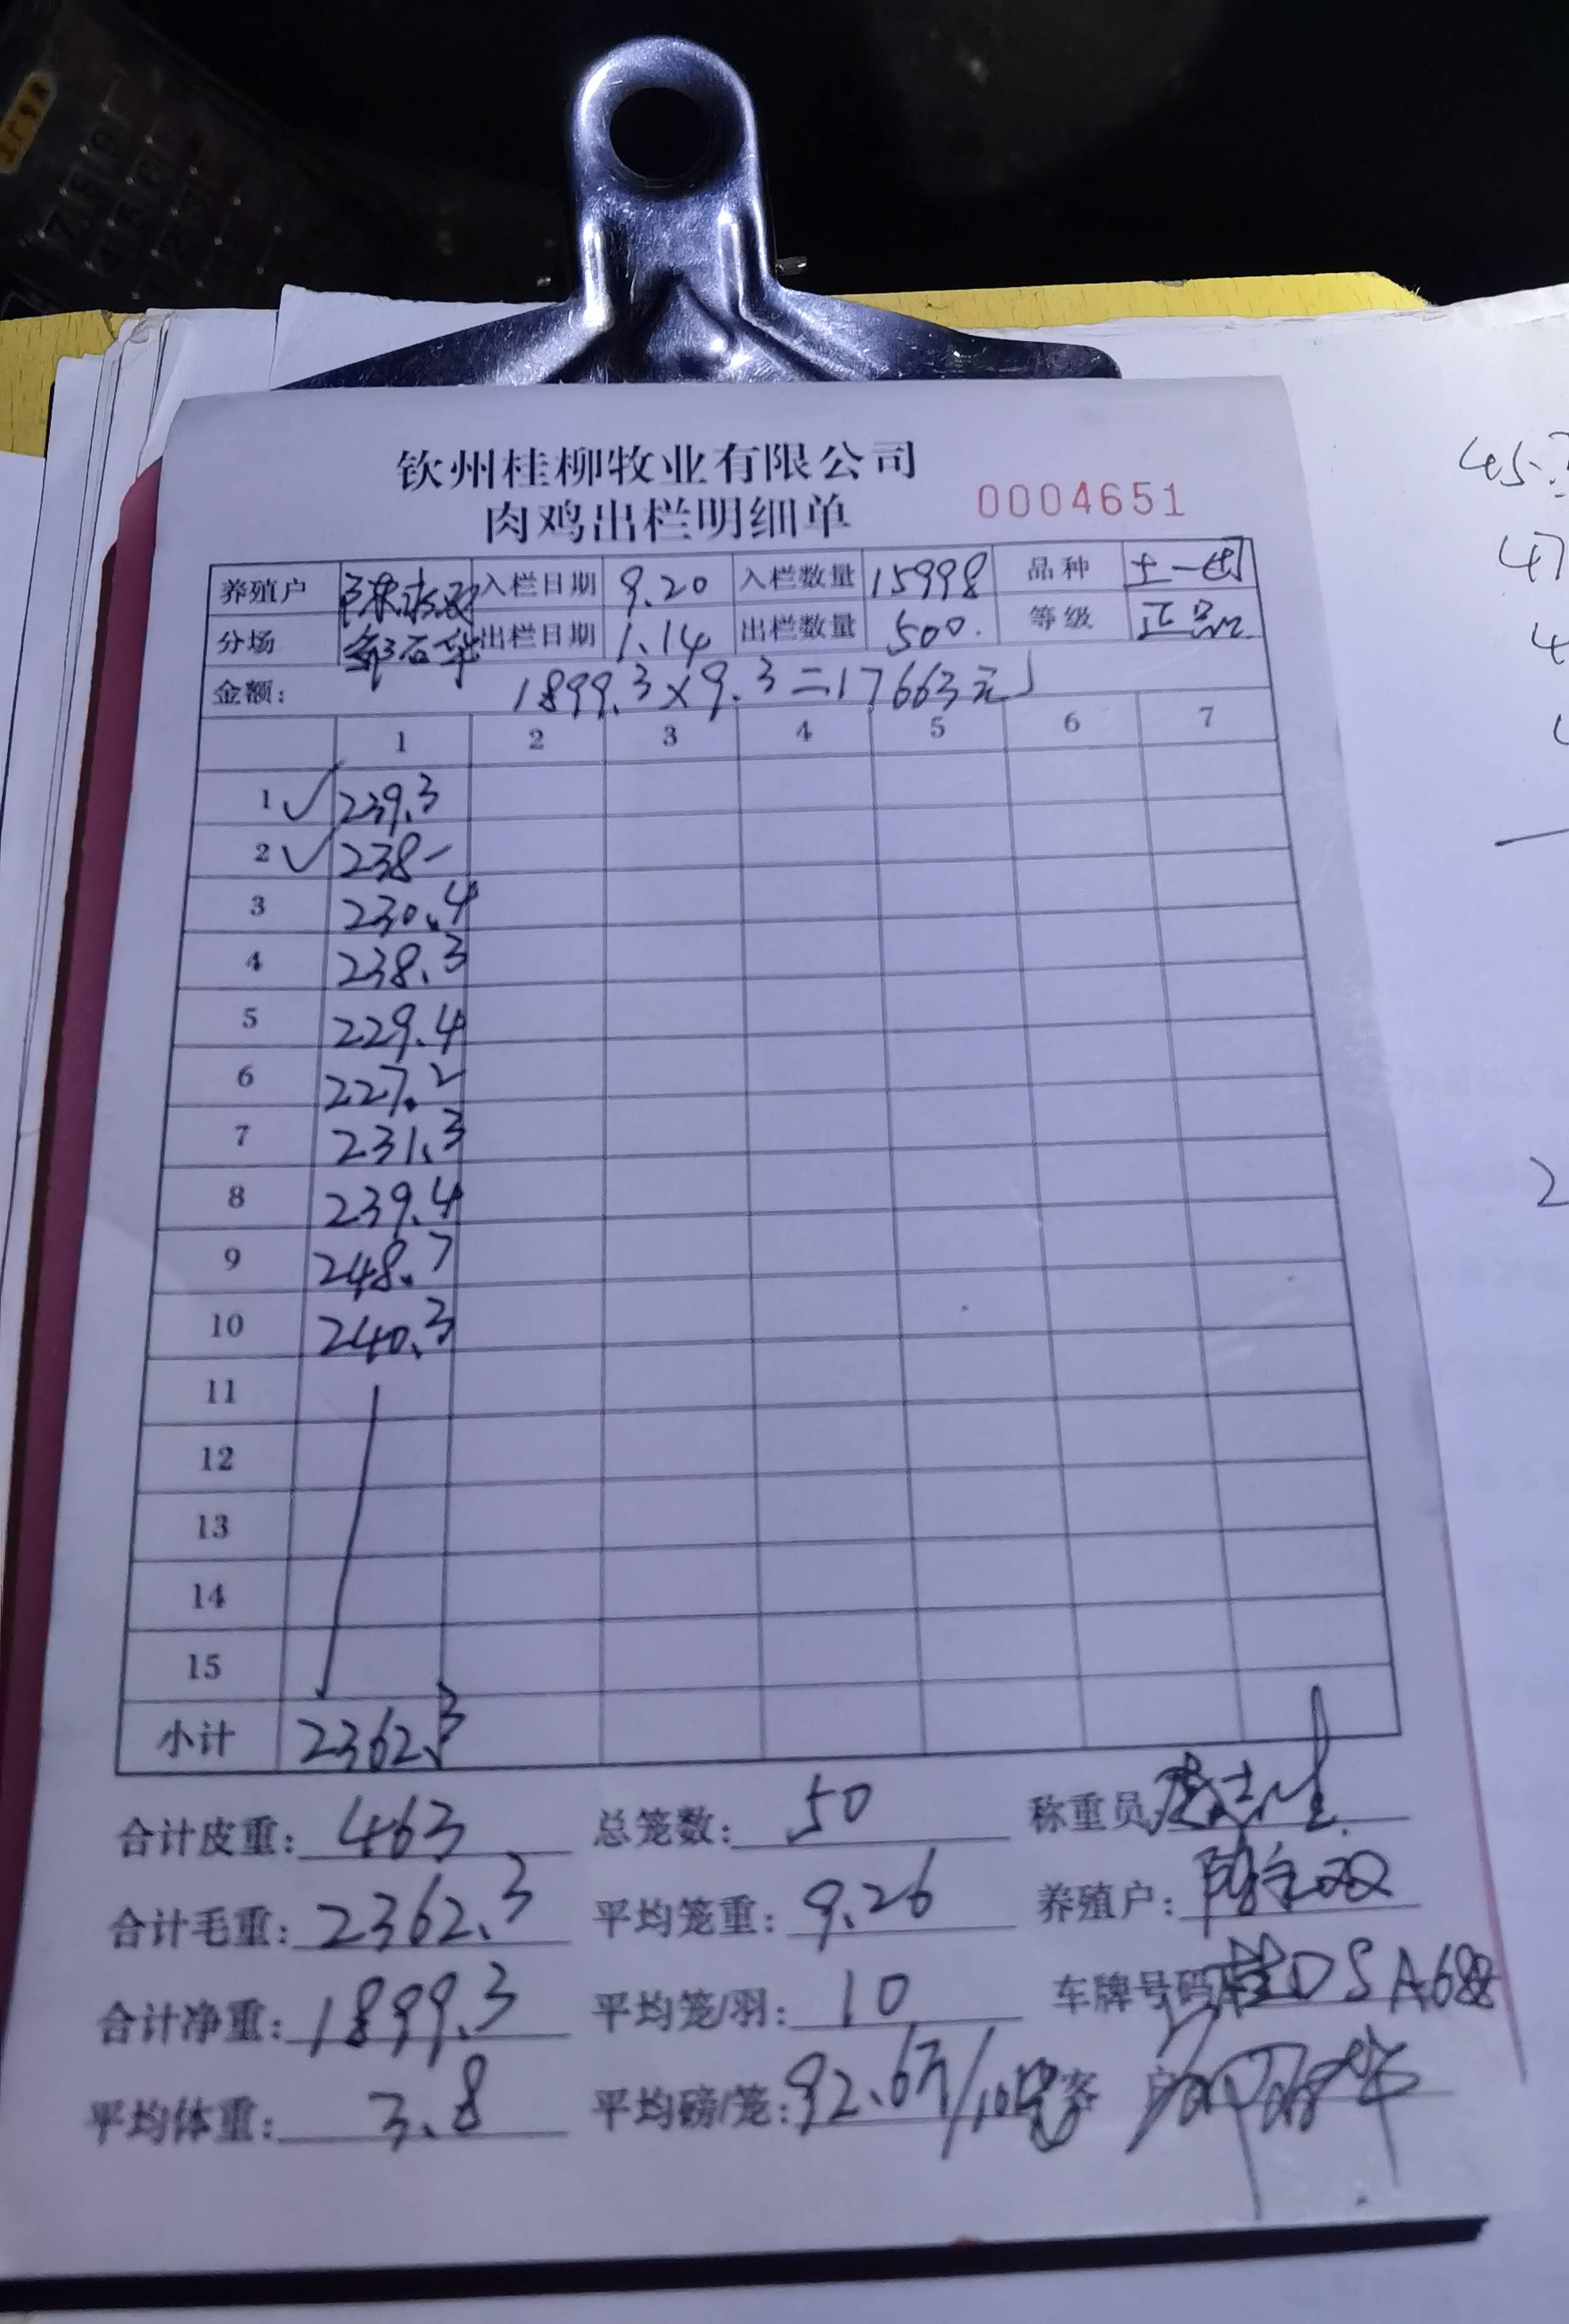 钦州桂柳牧业有限公司
肉鸡出栏明细单 0004651
养殖户 入栏日期 9.20 入栏数量 15998 品种 土一
分场 出栏日期 1.14 出栏数量 500. 等级 正品
金额: 1899.3×9.3=17663元
1 2 3 4 5 6 7
1 ✓ 239.3
2 ✓ 238-
3 230.4
4 238.3
5 229.4
6 227.2
7 231.3
8 239.4
9 248.7
10 240.3
11
12
13
14
15
小计 2362.3
合计皮重: 463 总笼数: 50 称重员
合计毛重: 2362.3 平均笼重: 9.26 养殖户:
合计净重: 1899.3 平均笼/羽: 10 车牌号码 桂DSA688
平均体重: 3.8 平均磅/笼: 92.6斤/10 客户